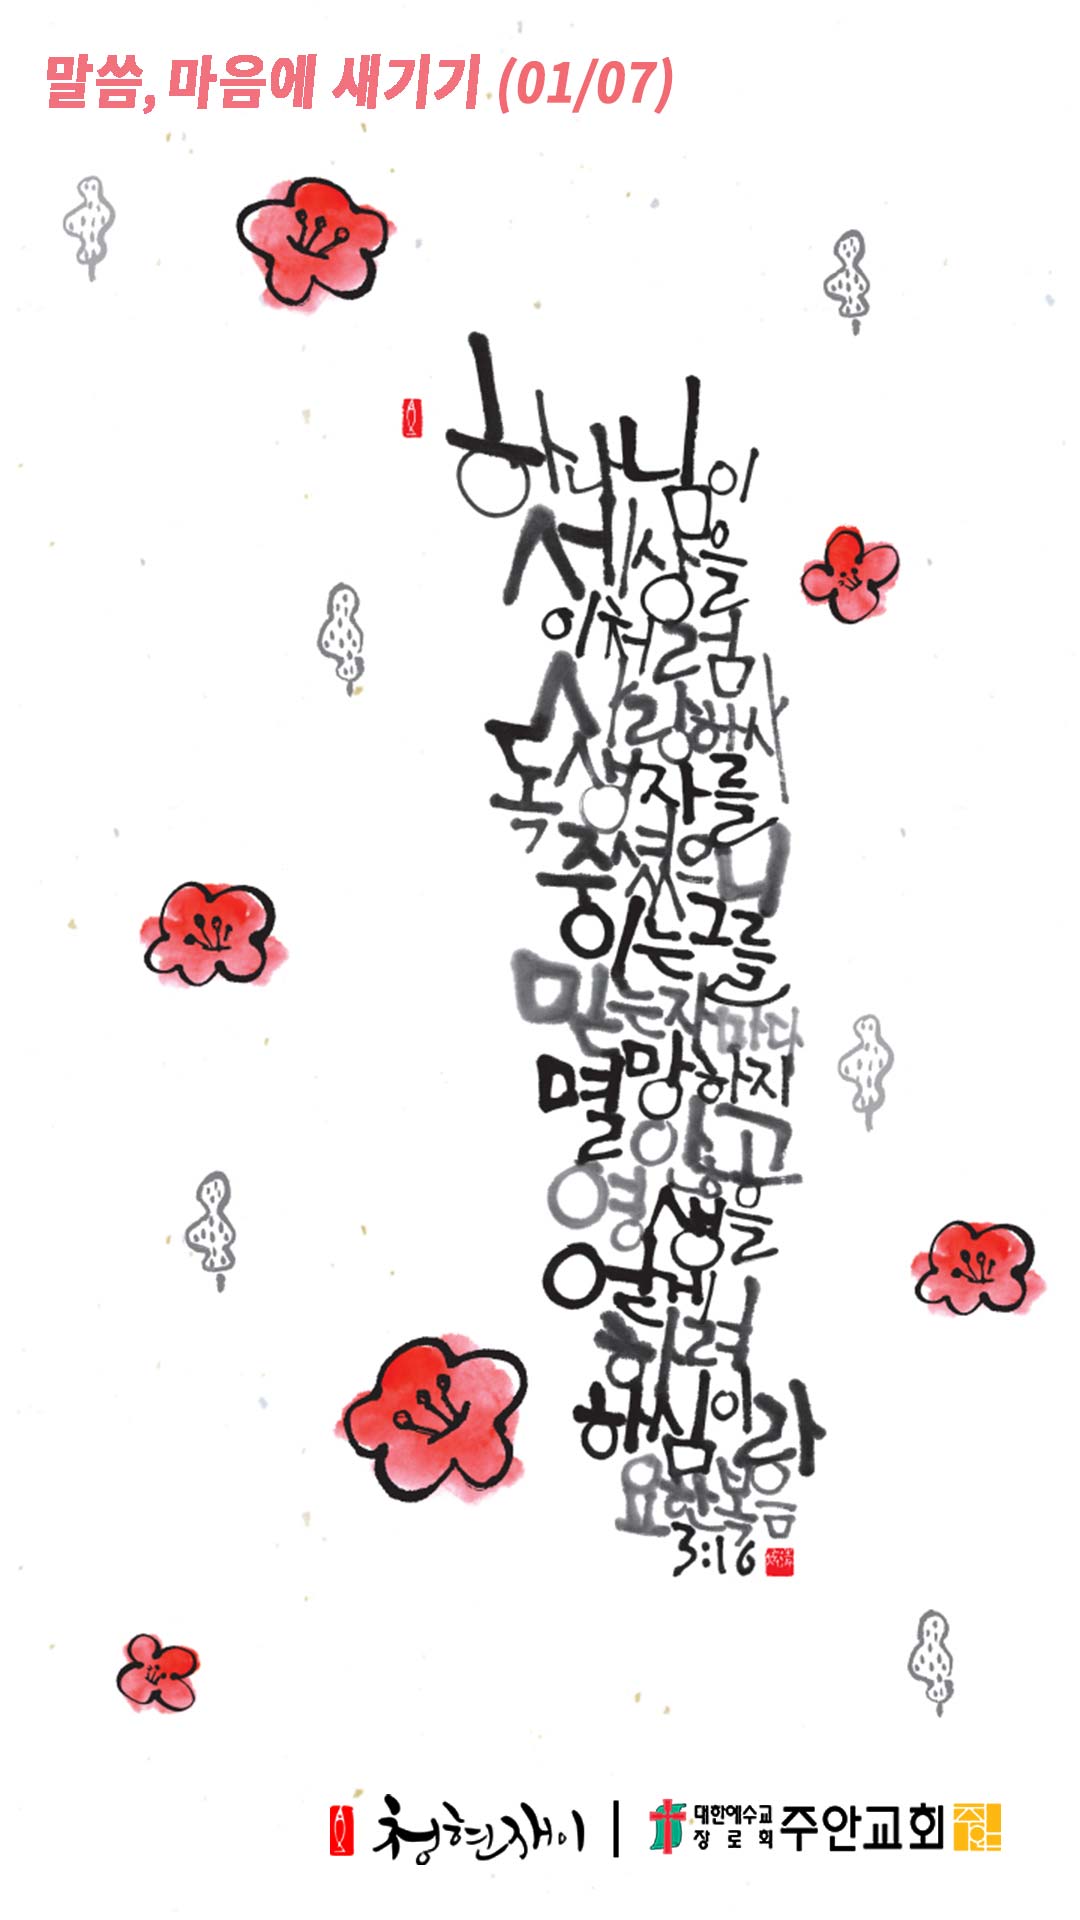 말씀, 마음에 새기기 (01/07)
하나님이
세상을
이처럼
사랑하사
독생자를
주셨으니
이는 그를
믿는 자마다
멸망하지
않고
영생을
얻게 하려
하심이라
요한복음
3:16
청현재이
대한예수교
장로회
주안교회
주안